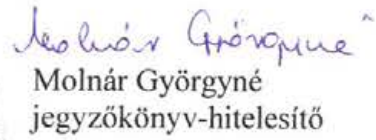 Molnár Györgyné
Molnár Györgyné
jegyzőkönyv-hitelesítő